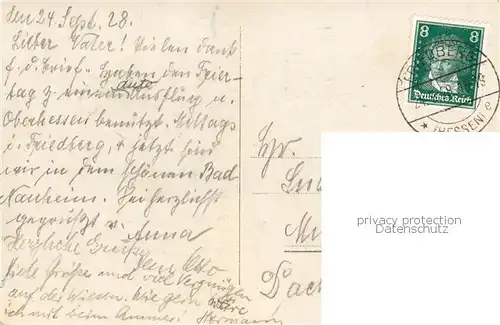 den 24. Sept. 28.
Lieber Vater! Vielen Dank
f. d. Brief. Haben den Feier-
tag z. einem Auto Ausflug n.
Oberhessen benützt. Mittags
i. Friedberg, u. jetzt sind
wir in dem schönen Bad
Nauheim. Sei herzlichst
gegrüsst v. Anna
Herzliche Grüße
Otto
Viele Grüße und viel Vergnügen
auf des Wiesen. Wie gern wäre
ich mit beim Ammer!
Hermann
8 8
Deutsches Reich
(HESSEN)
privacy protection
www.ansichtskartenversand.com